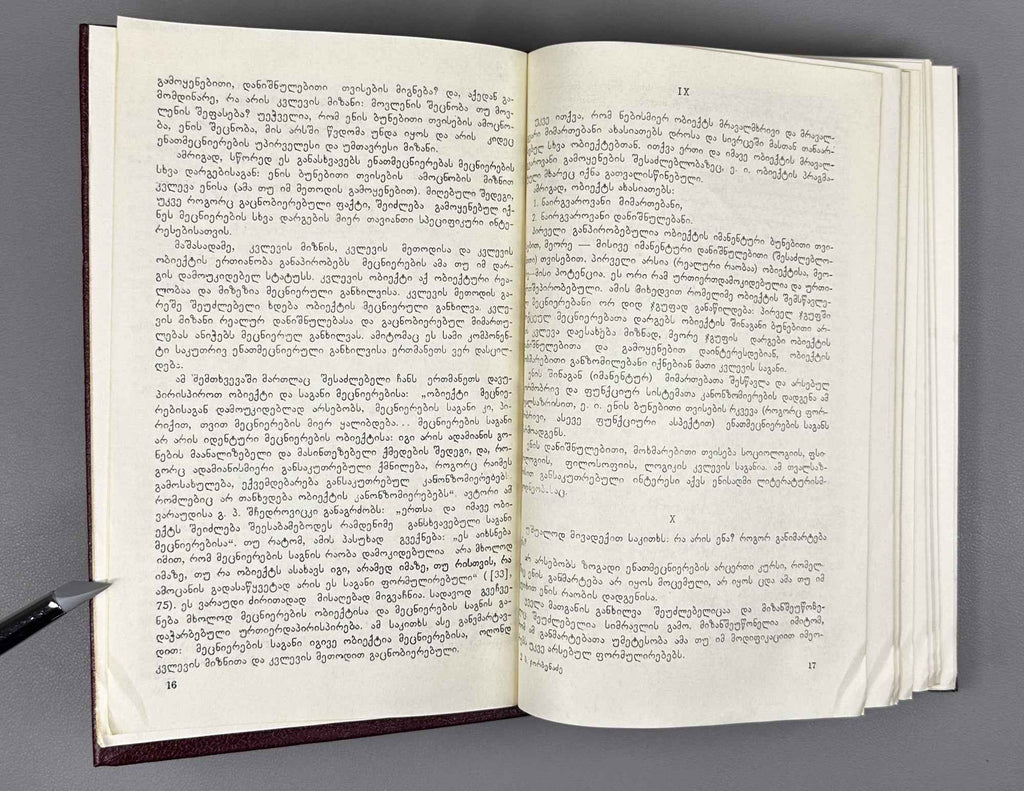 გამოყენებითი, დანიშნულებითი თვისების მიგნება? და, აქედან გა-
მომდინარე, რა არის კვლევის მიზანი: მოვლენის შეცნობა თუ მოვ-
ლენის შეფასება? უეჭველია, რომ ენის ბუნებითი თვისების ამოცნო-
ბა, ენის შეცნობა, მის არსში წვდომა უნდა იყოს და არის კიდეც
ენათმეცნიერების უპირველესი და უმთავრესი მიზანი.
ამრიგად, სწორედ ეს განასხვავებს ენათმეცნიერებას მეცნიერების
სხვა დარგებისაგან: ენის ბუნებითი თვისების ამოცნობის მიზნით
კვლევა ენისა (ამა თუ იმ მეთოდის გამოყენებით). მიღებული შედეგი,
უკვე როგორც გაცნობიერებული ფაქტი, შეიძლება გამოყენებულ იქ-
ნეს მეცნიერების სხვა დარგების მიერ თავიანთი სპეციფიკური ინტე-
რესებისათვის.
მაშასადამე, კვლევის მიზნის, კვლევის მეთოდისა და კვლევის
ობიექტის ერთიანობა განაპირობებს მეცნიერების ამა თუ იმ დარ-
გის დამოუკიდებელ სტატუსს. კვლევის ობიექტი აქ ობიექტური რეა-
ლობაა და მიზეზია მეცნიერული განხილვისა. კვლევის მეთოდის გა-
რეშე შეუძლებელი ხდება ობიექტის მეცნიერული განხილვა. კვლე-
ვის მიზანი რეალურ დანიშნულებასა და გაცნობიერებულ მიმართუ-
ლებას ანიჭებს მეცნიერულ განხილვას. ამიტომაც ეს სამი კომპონენ-
ტი საკუთრივ ენათმეცნიერული განხილვისა ერთმანეთს ვერ დასცილ-
დება.
ამ შემთხვევაში მართლაც შესაძლებელი ჩანს ერთმანეთს დავუ-
პირისპიროთ ობიექტი და საგანი მეცნიერებისა: „ობიექტი მეცნიე-
რებისაგან დამოუკიდებლად არსებობს, მეცნიერების საგანი კი, პი-
რიქით, თვით მეცნიერების მიერ ყალიბდება... მეცნიერების საგანი
არ არის იდენტური მეცნიერების ობიექტისა: იგი არის ადამიანის გო-
ნების მაანალიზებელი და მასინთეზებელი ქმედების შედეგი, და, რო-
გორც ადამიანისმიერი განსაკუთრებული ქმნილება, როგორც რაიმეს
გამოსახულება, ექვემდებარება განსაკუთრებულ კანონზომიერებებს,
რომლებიც არ თანხვდება ობიექტის კანონზომიერებებს“. ავტორი ამ
ვარაუდისა გ. პ. შჩედროვიცკი განაგრძობს: „ერთსა და იმავე ობი-
ექტს შეიძლება შეესაბამებოდეს რამდენიმე განსხვავებული საგანი
მეცნიერებისა“. თუ რატომ, ამის პასუხად გვექნება: „ეს აიხსნება
იმით, რომ მეცნიერების საგნის რაობა დამოკიდებულია არა მხოლოდ
იმაზე, თუ რა ობიექტს ასახავს იგი, არამედ იმაზე, თუ რისთვის, რა
ამოცანის გადასაწყვეტად არის ეს საგანი ფორმულირებული“ ([33],
75). ეს ვარაუდი ძირითადად მისაღებად მიგვაჩნია. სადავოდ გვეჩვე-
ნება მხოლოდ მეცნიერების ობიექტისა და მეცნიერების საგნის გა-
დაჭარბებული ურთიერდაპირისპირება. ამ საკითხს ასე განვმარტავ-
დით: მეცნიერების საგანი იგივე ობიექტია მეცნიერებისა, ოღონდ
კვლევის მიზნითა და კვლევის მეთოდით გაცნობიერებული.
16
IX
უკვე ითქვა, რომ ნებისმიერ ობიექტს მრავალმხრივი და მრავალ-
მიმართებანი ახასიათებს დროსა და სივრცეში მასთან თანაარ-
სხვა ობიექტებთან. ითქვა ერთი და იმავე ობიექტის მრავალ-
გამოყენების შესაძლებლობაზეც, ე. ი. ობიექტის პრაგმა-
მხარეც იქნა გათვალისწინებული.
ამრიგად, ობიექტს ახასიათებს:
1. ნაირგვაროვანი მიმართებანი,
2. ნაირგვაროვანი დანიშნულებანი.
პირველი განპირობებულია ობიექტის იმანენტური ბუნებითი თვი-
მეორე — მისივე იმანენტური დანიშნულებითი (შესაძლებლო-
თვისებით. პირველი არსია (რეალური რაობაა) ობიექტისა, მეო-
მისი პოტენცია. ეს ორი რამ ურთიერთდამოკიდებულია და ურთი-
ამის მიხედვით რომელიმე ობიექტის შემსწავლე-
მეცნიერებანი ორ დიდ ჯგუფად განაწილდება: პირველ ჯგუფში
მეცნიერებათა დარგებს ობიექტის შინაგანი ბუნებითი არ-
კვლევა დაესახება მიზნად, მეორე ჯგუფის დარგები ობიექტის
და გამოყენებით დაინტერესდებიან, ობიექტის
განზომილებანი იქნებიან მათი კვლევის საგანი.
ენის შინაგან (იმანენტურ) მიმართებათა შესწავლა და არსებულ
და ფუნქციურ სისტემათა კანონზომიერების დადგენა ამ
ე. ი. ენის ბუნებითი თვისების რკვევა (როგორც ფორ-
ასევე ფუნქციური ასპექტით) ენათმეცნიერების საგანს
ენის დანიშნულებითი, მოხმარებითი თვისება სოციოლოგიის, ფსი-
ფილოსოფიის, ლოგიკის კვლევის საგანია. ამ თვალსაზ-
განსაკუთრებული ინტერესი აქვს ენისადმი ლიტერატურისმ-
X
უშუალოდ მივადექით საკითხს: რა არის ენა? როგორ განიმარტება
არ არსებობს ზოგადი ენათმეცნიერების არცერთი კურსი, რომელ-
ენის განმარტება არ იყოს მოცემული, არ იყოს ცდა ამა თუ იმ
ენის რაობის დადგენისა.
მათგანის განხილვა შეუძლებელიცაა და მიზანშეუწონე-
შეუძლებელია სიმრავლის გამო. მიზანშეუწონელია იმიტომ,
ამ განმარტებათა უმეტესობა ამა თუ იმ მოდიფიკაციით იმეო-
უკვე არსებულ ფორმულირებებს.
17